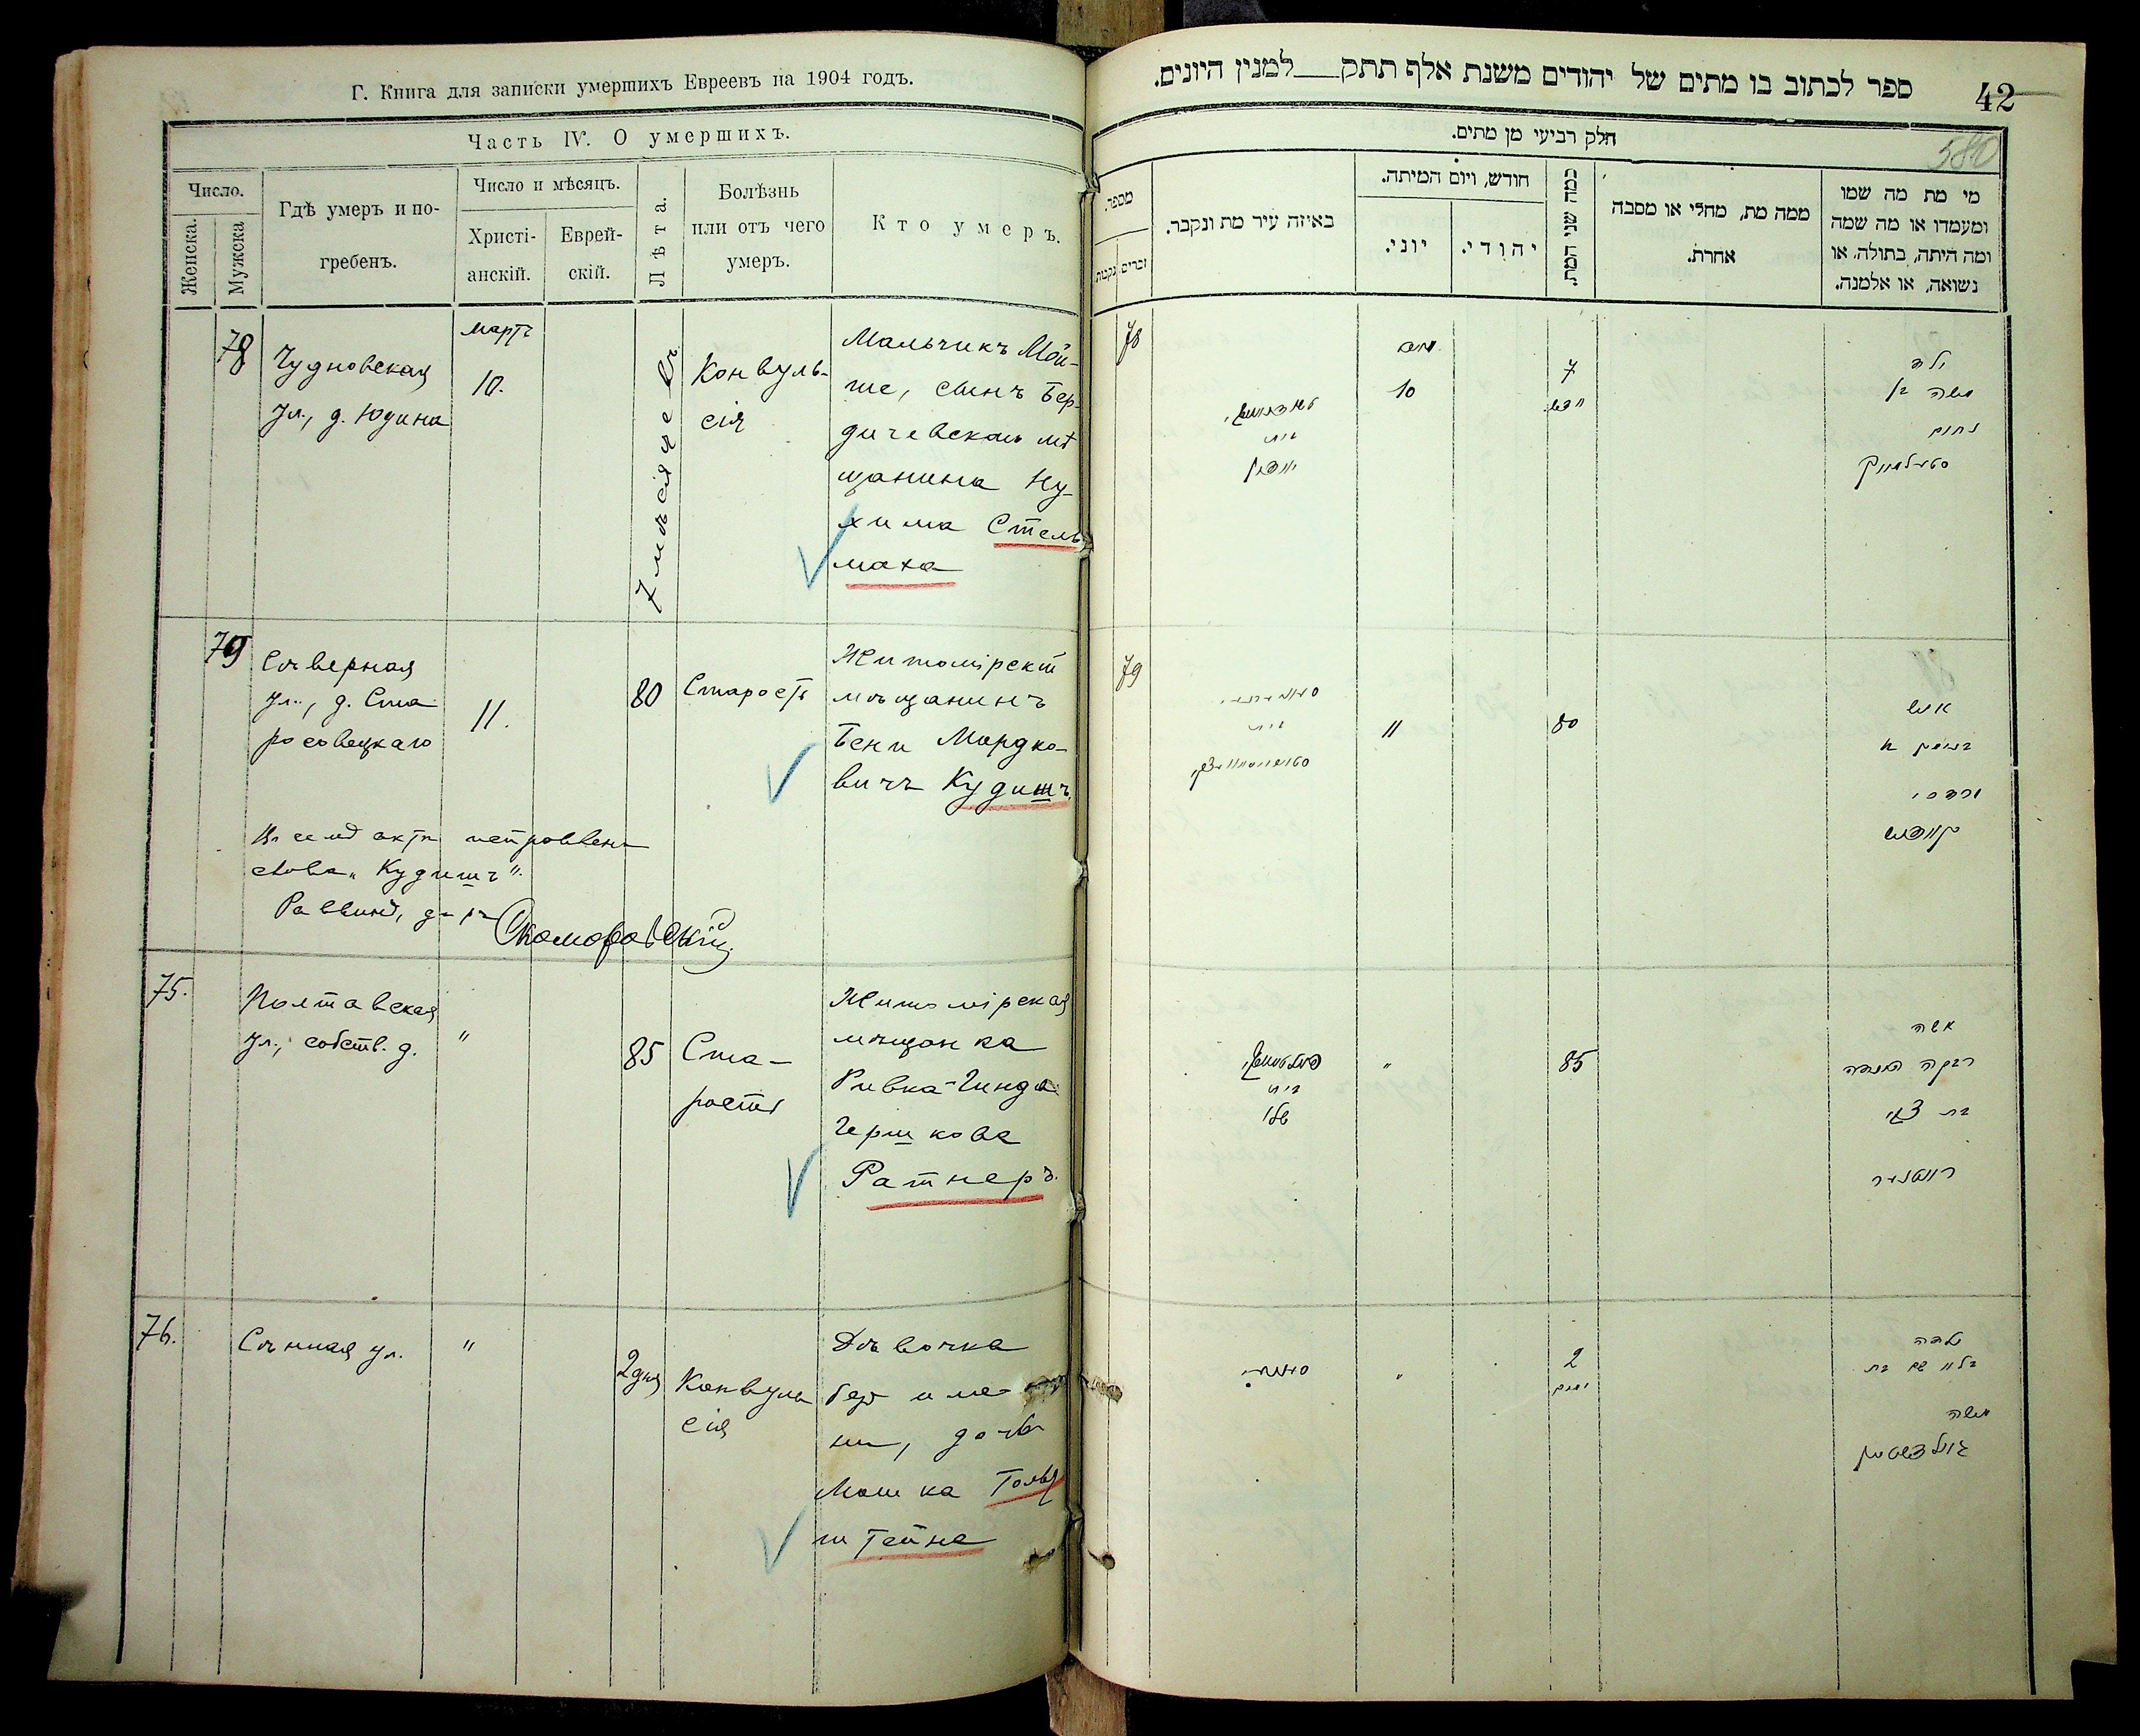 Г. Книга для записки умершихъ Евреевъ на 1904 годъ.
Часть IV. О умершихъ.
Число.
Женска.
Мужска
Гдѣ умеръ и по-
гребенъ.
Число и мѣсяцъ.
Христі-
анскій.
Еврей-
скій.
Лѣта.
Болѣзнь
или отъ чего
умеръ.
Кто умеръ.
78
Чудновская
ул., д. Юдина
мартъ
10.
7 мѣсяцевъ
Конвуль-
сія
Мальчикъ Мой-
ше, сынъ Бер-
дичевскаго мѣ
щанина Ну-
хима Стель-
маха
79
Сѣверная
ул., д. Ста
росовецкаго
11.
80
Старость
Житомірскій
мѣщанинъ
Бени Мордко-
вичъ Кудишъ.
слова „Кудишъ".
Раввинъ, д-ръ Скоморовскій
75.
Полтавская
ул., собств. д.
"
85
Ста-
рость
Житомірская
мѣщанка
Ривка-Гинда
Гершкова
Ратнеръ.
76.
Сѣнная ул.
"
2 дня
Конвуль
сія
Дѣвочка
безъ име-
ни, дочь
Мошка Голь
штейна
ספר לכתוב בו מתים של יהודים משנת אלף תתק למנין היונים.
42
580
חלק רביעי מן מתים.
מספר.
זכרים.
נקבות
באיזה עיר מת ונקבר.
חודש, ויום המיתה.
יוני.
יהודי.
כמה שני המת.
ממה מת, מחלי או מסבה
אחרת.
מי מת מה שמו
ומעמדו או מה שמה
ומה היתה, בתולה, או
נשואה, או אלמנה.
78
10
7
חדש
בית
יודין
ילד
משה בן
נחום
סטעלמאך
79
בית
11
80
איש
מרדכי
קודיש
בית
שלו
"
85
אשה
רבקה הינדה
בת צבי
ראטנער
"
2
ימים
ילדה
בלי שם בת
משה
גולדשטיין